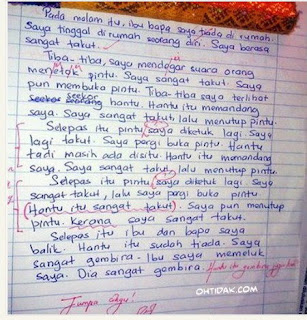 Pada malam itu, ibu bapa saya tiada di rumah.
Saya tinggal di rumah seorang diri. Saya berasa
sangat takut.
Tiba-tiba, saya mendengar suara orang
mengetok pintu. Saya sangat takut. Saya
pun membuka pintu. Tiba-tiba saya terlihat
seekor
seekor seorang hantu. Hantu itu memandang
saya. Saya sangat takut, lalu menutup pintu.
Selepas itu pintu saya diketuk lagi. Saya
lagi takut. Saya pergi buka pintu. Hantu
tadi masih ada disitu. Hantu itu memandang
saya. Saya sangat takut, lalu menutup pintu.
Selepas itu pintu saya diketuk lagi. Saya
sangat takut, lalu saya pergi buka pintu.
(Hantu itu sangat takut). Saya pun menutup
pintu kerana saya sangat takut.
Selepas itu ibu dan bapa saya
balik. Hantu itu sudah tiada. Saya
sangat gembira. Ibu saya memeluk
saya. Dia sangat gembira.
OHTIDAK.COM
Jumpa cikgu!